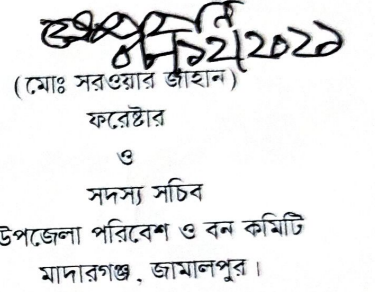 (মোঃ সরওয়ার জাহান)
ফরেষ্টার
ও
সদস্য সচিব
উপজেলা পরিবেশ ও বন কমিটি
মাদারগঞ্জ, জামালপুর।